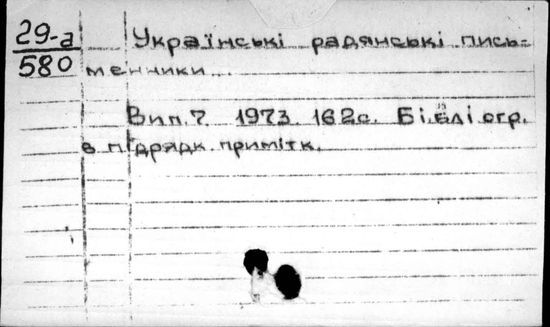 29-а
580
Українські радянські пись-
менники...
Вип.7 1973 162с. Бібліогр.
в підрядк. примітк.